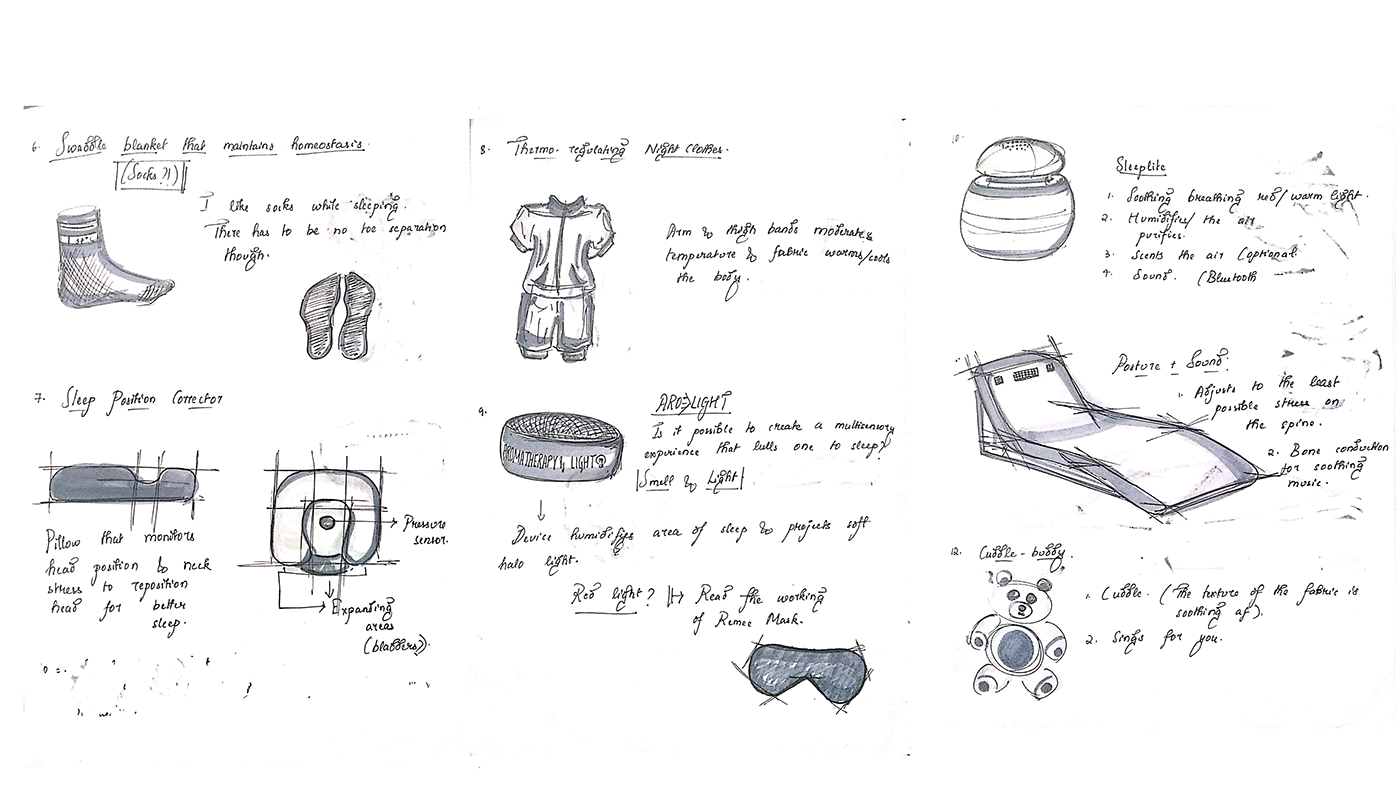 6. Swaddle blanket that maintains homeostasis.
(Socks?!)
I like socks while sleeping.
There has to be no toe separation
though.
7. Sleep Position Corrector
Pillow that monitors
head position & neck
stress to reposition
head for better
sleep.
Pressure
sensor.
Expanding
areas
(bladders).
8. Thermo-regulating Night Clothes.
Arm & thigh bands moderate
temperature & fabric warms/cools
the body.
9.
AROMATHERAPY & LIGHT
Is it possible to create a multisensory
experience that lulls one to sleep?
Smell & Light
Device humidifies area of sleep & projects soft
halo light.
Red light? Read the working
of Remee Mask.
10.
Sleeplite
1. Soothing breathing red/warm light.
2. Humidifies/ the air
purifies.
3. Scents the air (optional
4. Sound. (Bluetooth
Posture + Sound.
1. Adjusts to the least
possible stress on
the spine.
2. Bone conduction
for soothing
music.
12. Cuddle-buddy.
1. Cuddle. (The texture of the fabric is
soothing af).
2. Sings for you.